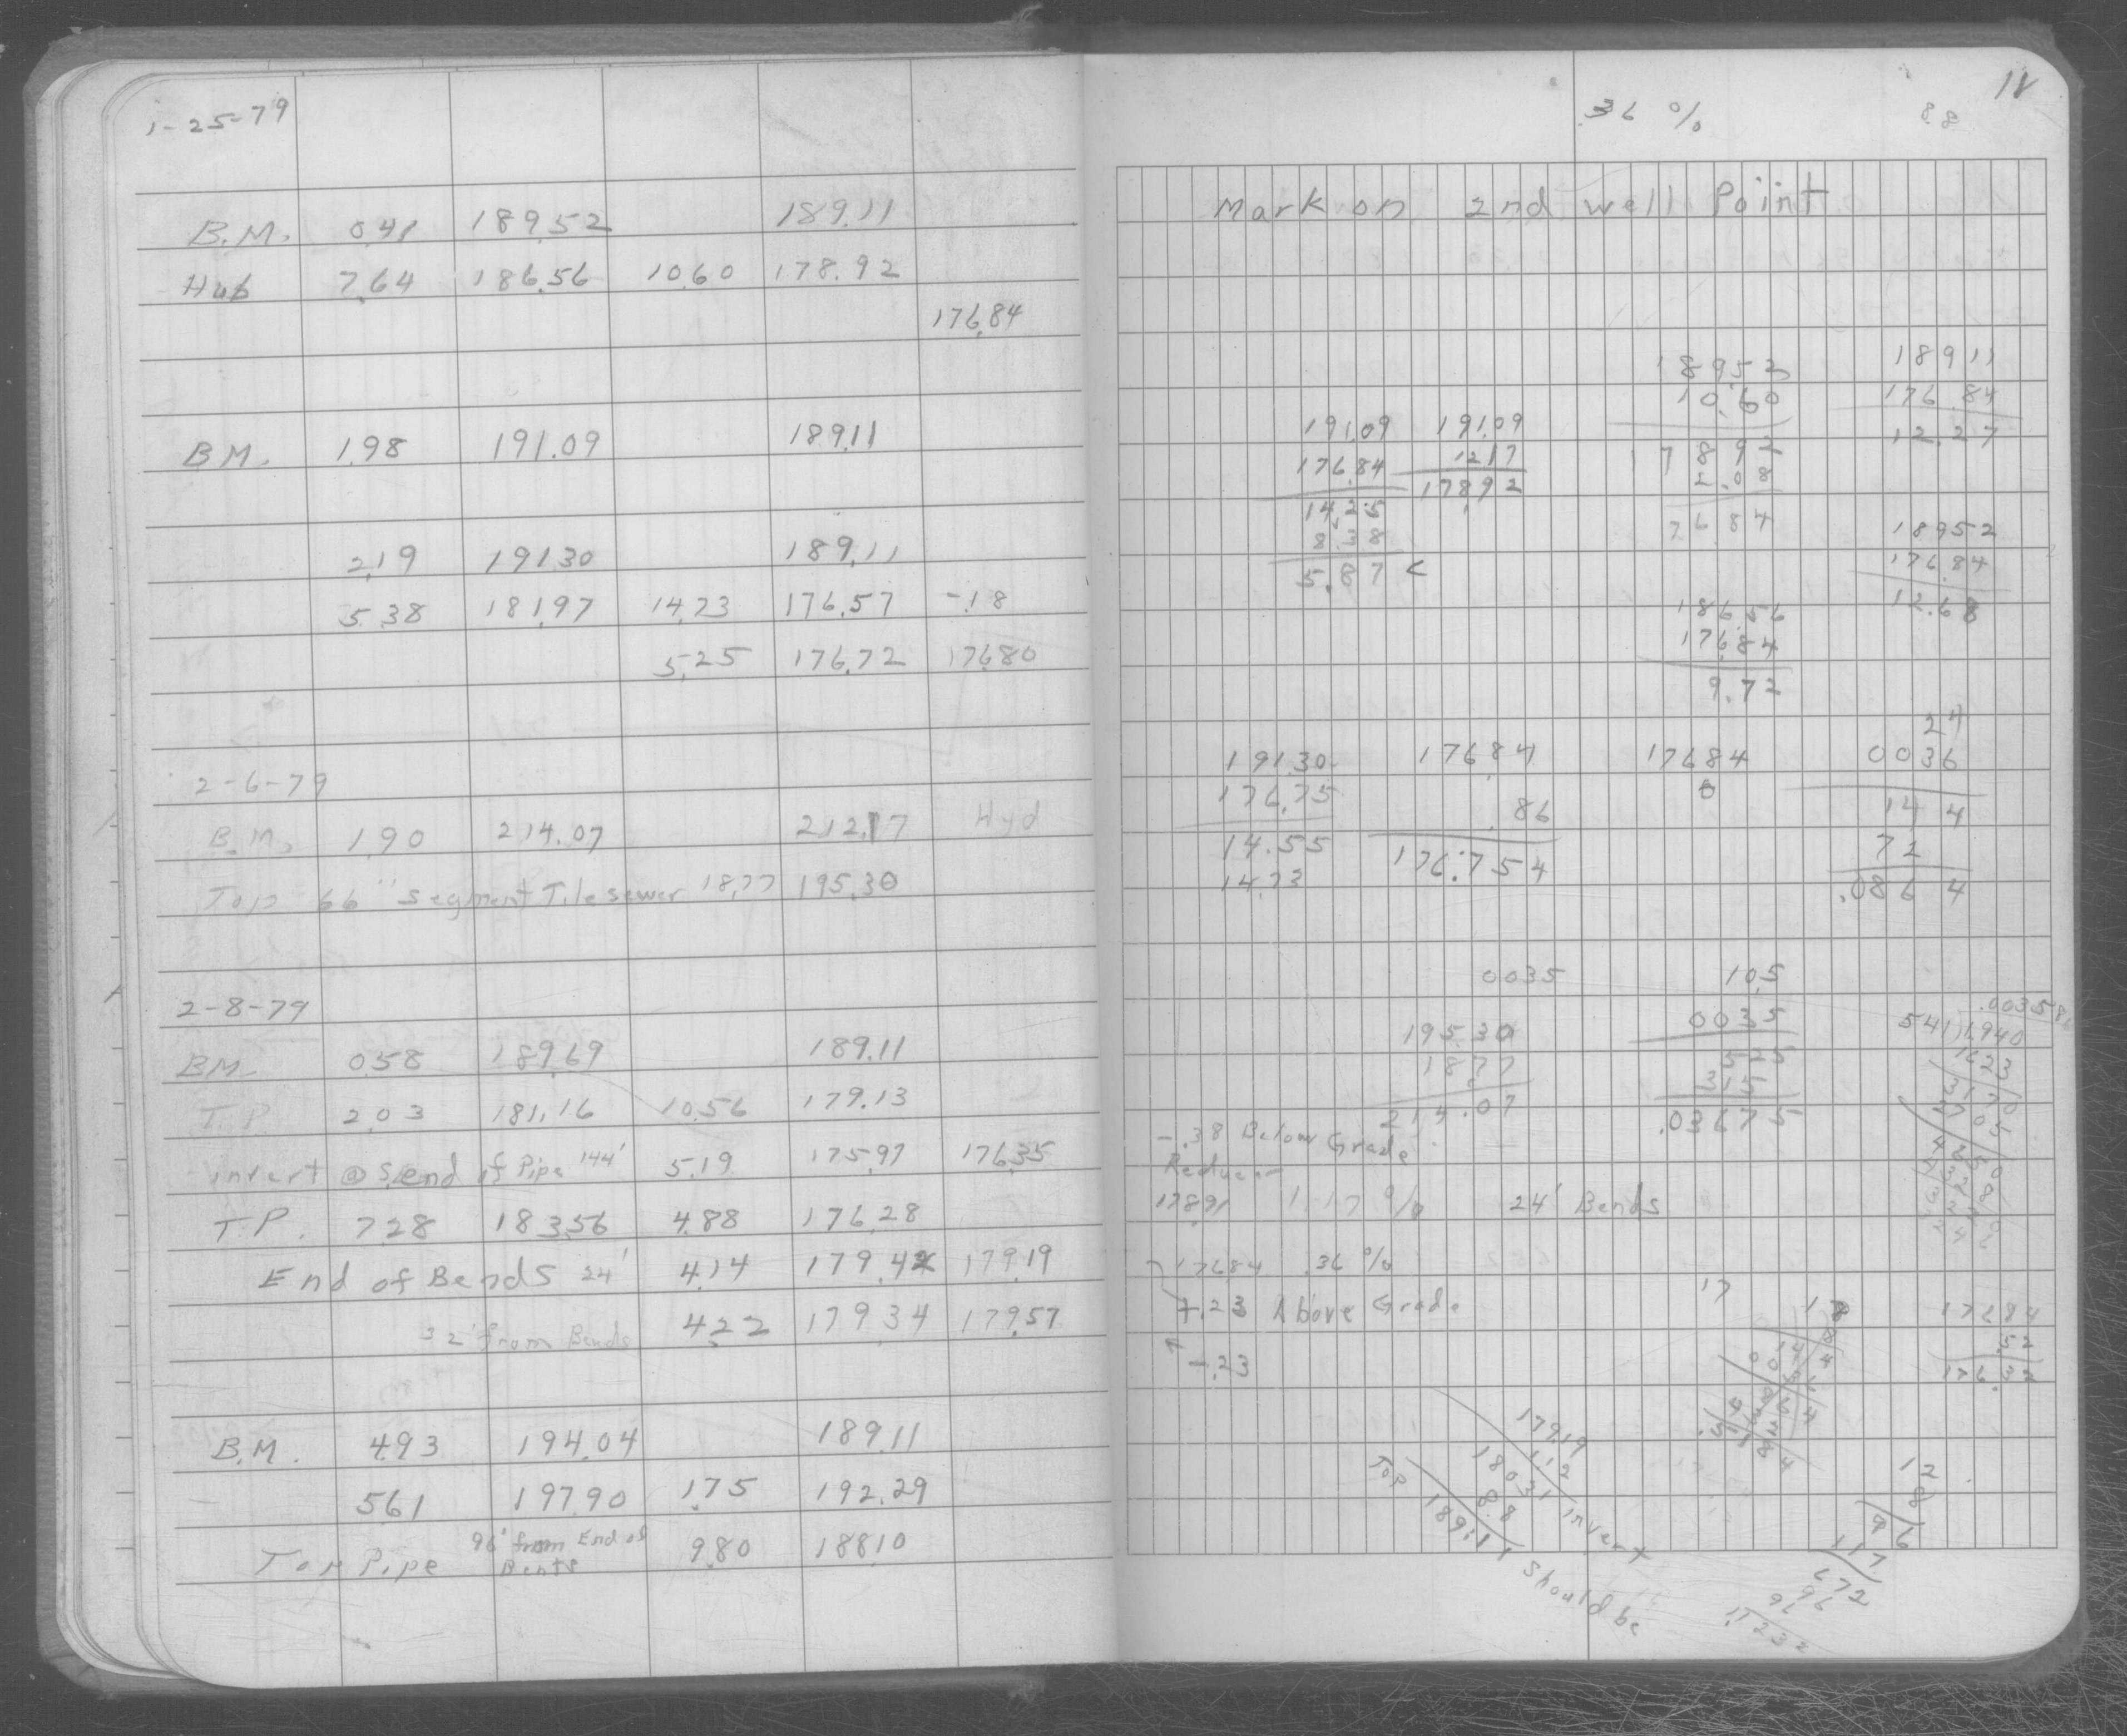 1-25-79
B.M. 0.41 189.52 189.11
Hub 7.64 186.56 10.60 178.92
176.84
B.M. 1.98 191.09 189.11
2.19 191.30 189.11
5.38 181.97 14.73 176.57 -.18
5.25 176.72 176.80
2-6-79
B.M. 1.90 214.07 212.17 Hyd
Top 66" Segment Tile sewer 18.77 195.30
2-8-79
BM. 0.58 189.69 189.11
T.P. 2.03 181.16 10.56 179.13
invert @ S.end of Pipe 144' 5.19 175.97 176.35
T.P. 7.28 183.56 4.88 176.28
End of Bends 24' 4.14 179.42 179.19
32' from Bends 4.22 179.34 179.57
B.M. 4.93 194.04 189.11
5.61 197.90 1.75 192.29
Top Pipe 96' from End of Bents 9.80 188.10
11
.36 % 8.8
Mark on 2nd well Point
191.09
176.84
14.25
8.38
5.87 <
191.09
12.17
178.92
189.52
10.60
178.92
2.08
76.84
189.11
176.84
12.27
189.52
176.84
12.68
186.56
176.84
9.72
191.30
176.75
14.55
14.73
176.84
.86
176.754
176.84
0
24
0036
144
72
.0864
0035
195.30
18.77
214.07
10.5
0035
525
315
.03675
.00358
541)1.940
1623
-.38 Below Grade
Reducer
178.91 1.17 % 24' Bends
176.84 .36 %
+.23 Above Grade
-.23
17
176.84
.52
176.32
179.19
1.12
180.31 invert
8.8
Top 189.11 should be
12
8
96
117
672
96
96
1.1232